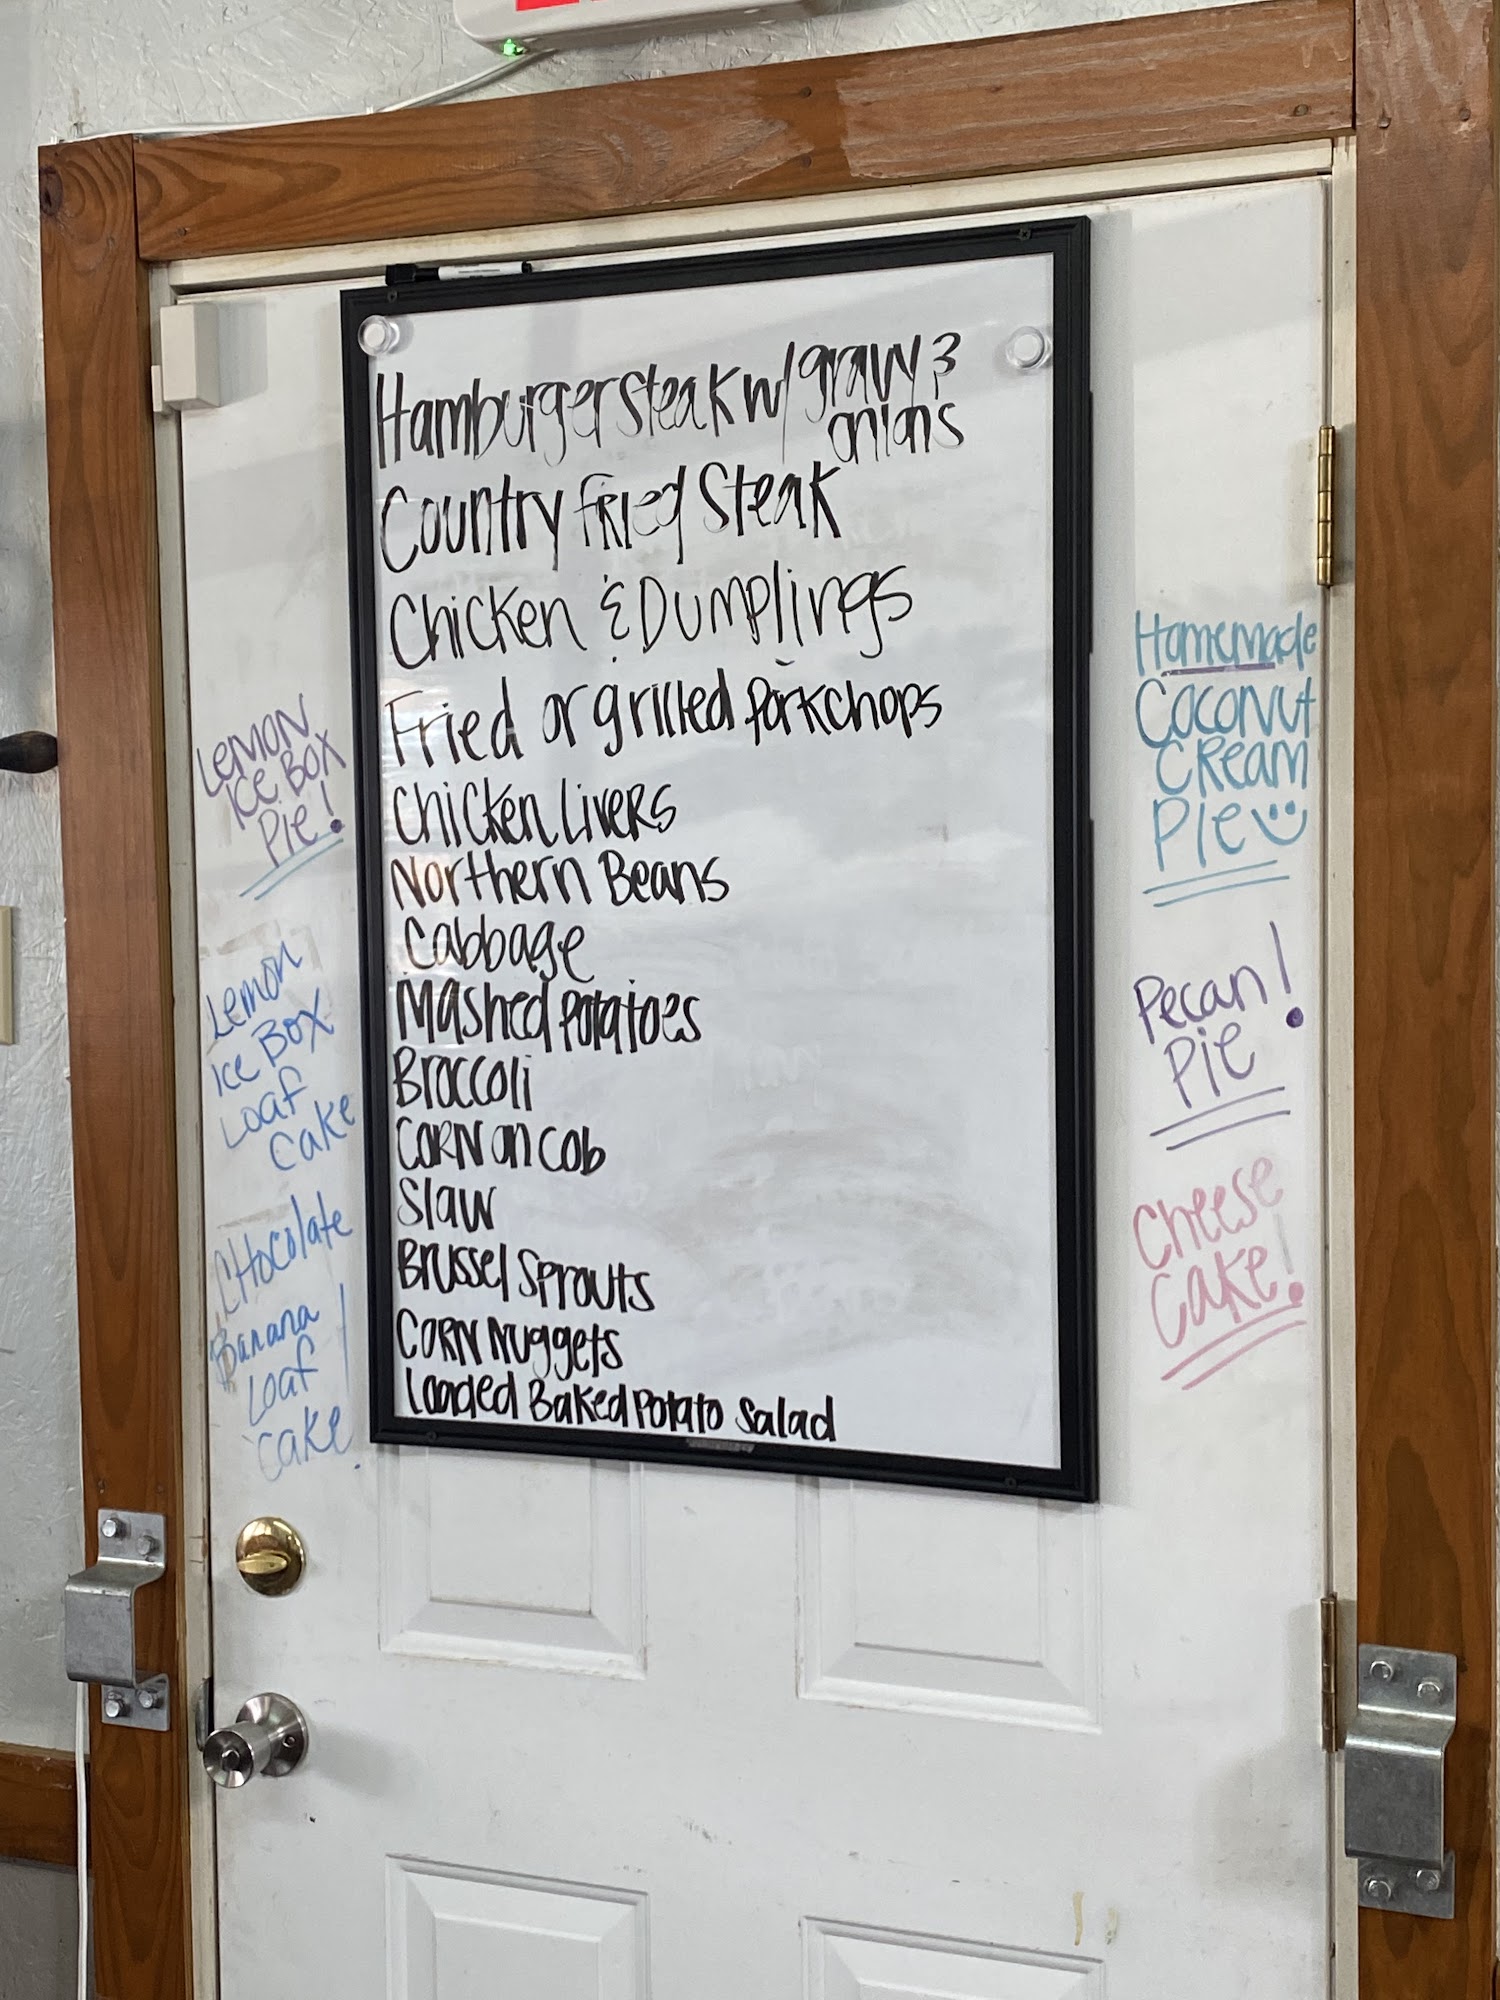 Hamburger Steak w/ gravy &
onions
Country Fried Steak
Chicken & Dumplings
Fried or grilled Porkchops
Chicken Livers
Northern Beans
Cabbage
Mashed Potatoes
Broccoli
Corn on Cob
Slaw
Brussel Sprouts
Corn Nuggets
Loaded Baked Potato Salad
Lemon
Ice Box
Pie!
Lemon
Ice Box
Loaf
Cake
Chocolate
Banana
Loaf
Cake!
Homemade
Coconut
Cream
Pie
Pecan!
Pie
Cheese
Cake!